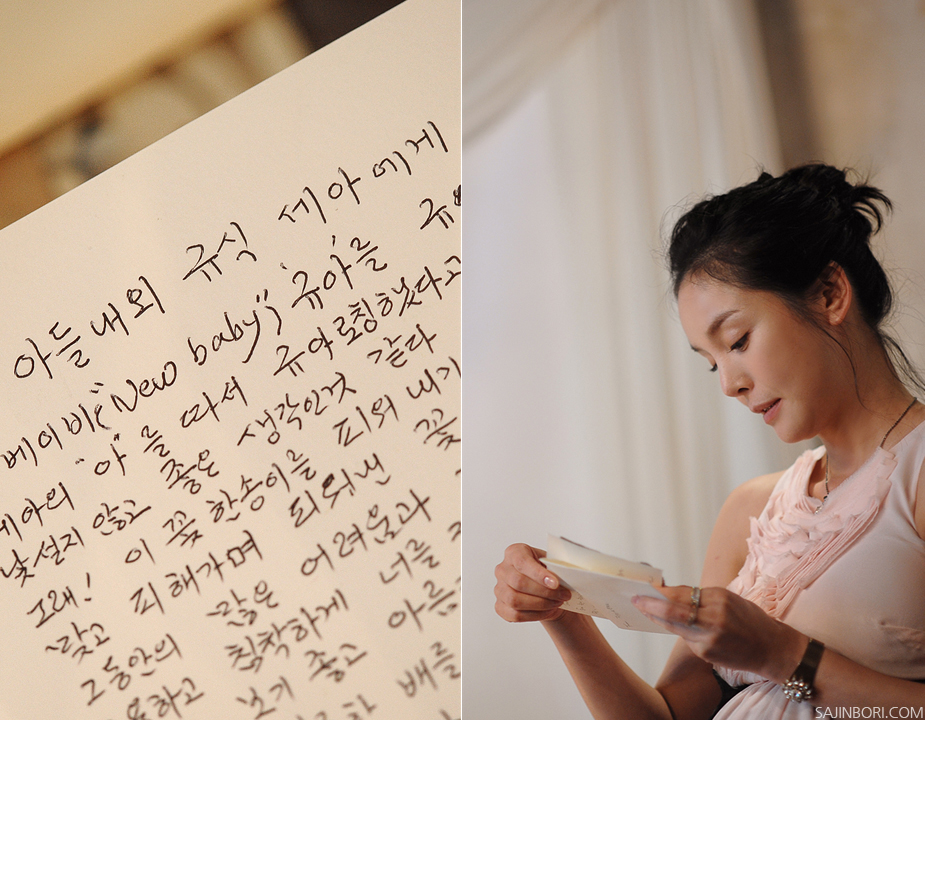 아들내외 규식 세아에게
베이비("New baby"); '규아'를
세아의 '아'를 따서 규아로칭했다고
낯설지 않고 좋은 생각인것 같다
그래! 이 꽃 한송이를 피워 내기
낳고 피해가며 피워낸 꽃
그동안의 많은 어려움과
하고 침착하게 너를
보기 좋고 아름
배를
SAJINBORI.COM